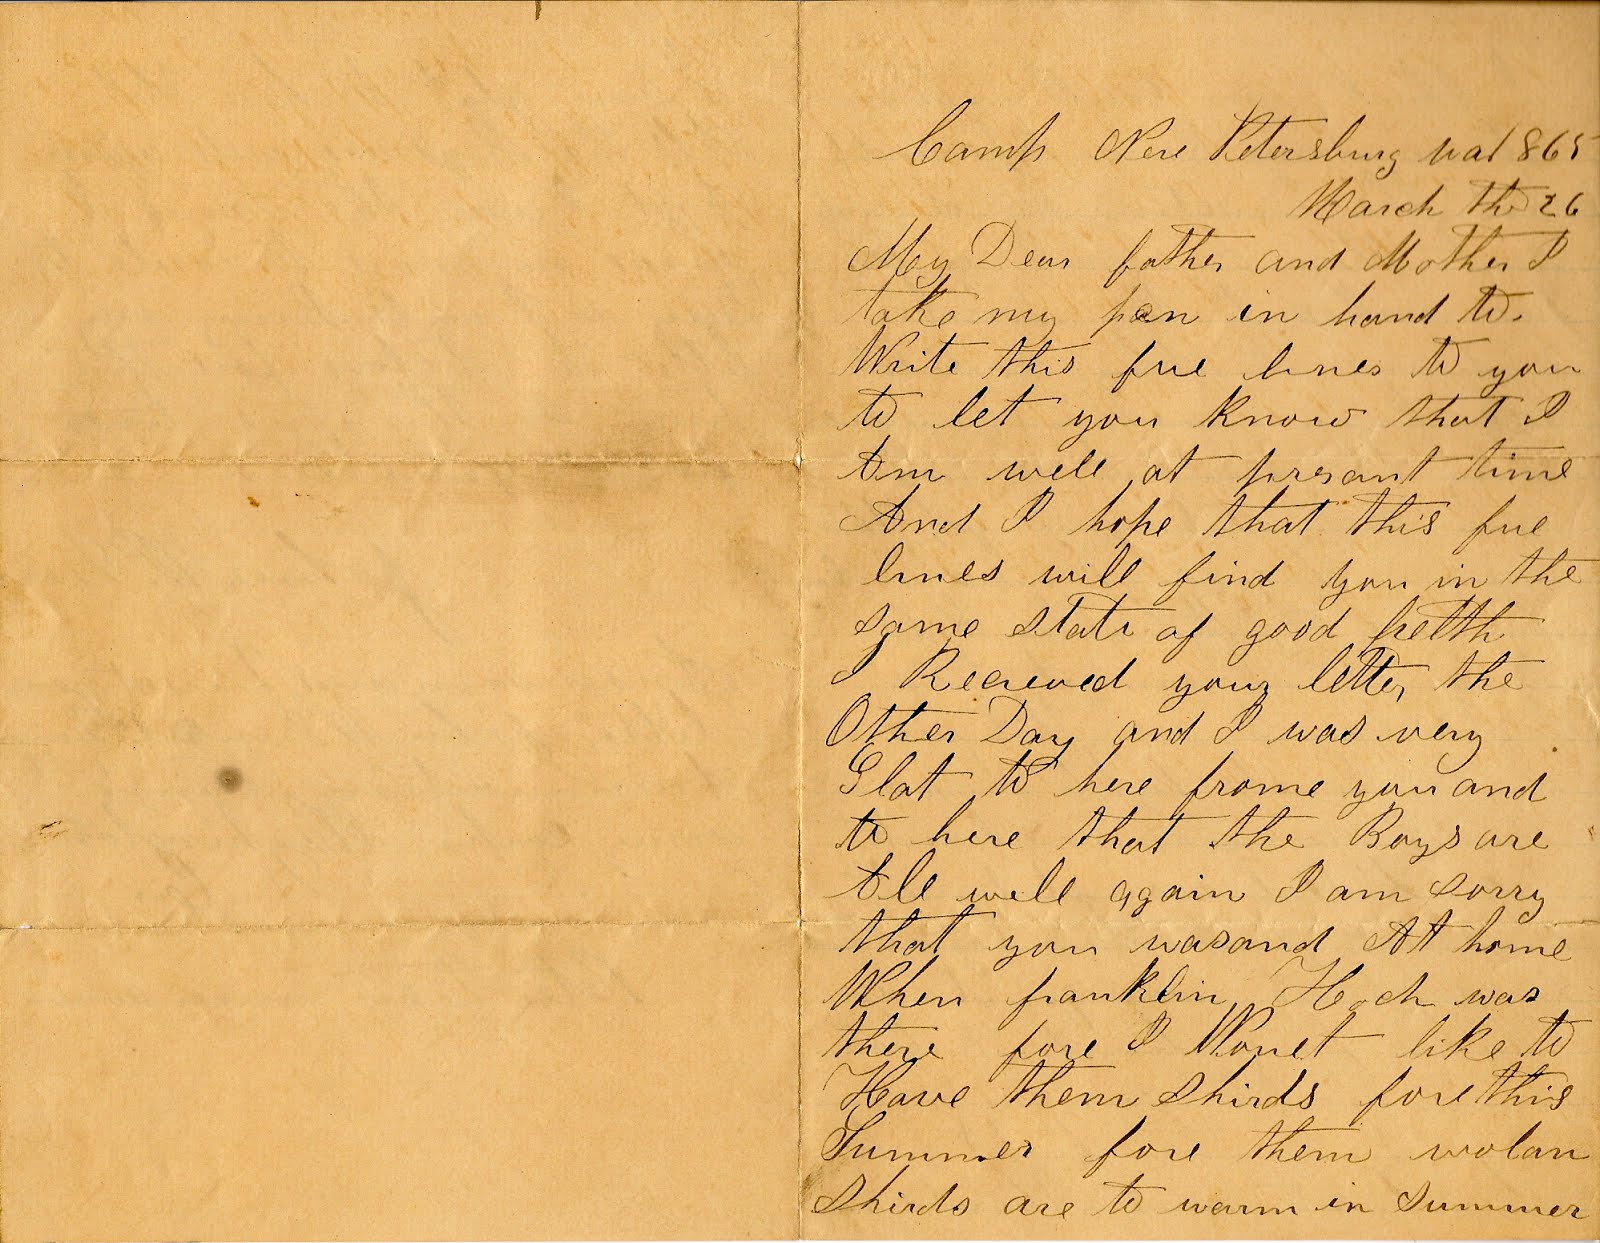 Camp Nere Petersburg va 1865
March the 26
My Dear father and Mother I
take my pen in hand to
Write this fue lines to you
to let you know that I
Am well at presant time
And I hope that this fue
lines will find you in the
same state of good helth
I Recieved your letter the
Other Day and I was very
Glat to here frome you and
to here that the Boys are
All well again I am sorry
that you wasand At home
When franklin Hoch was
there fore I Wonet like to
Have them shirds fore this
Summer fore them wolan
Shirds are to warm in summer